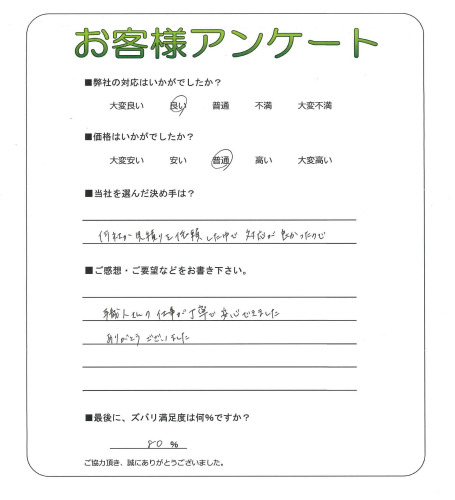 お客様アンケート
■弊社の対応はいかがでしたか？
大変良い 良い 普通 不満 大変不満
■価格はいかがでしたか？
大変安い 安い 普通 高い 大変高い
■当社を選んだ決め手は？
何社か見積りを依頼した中で 対応が 良かったので
■ご感想・ご要望などをお書き下さい。
職人さんの 仕事が丁寧で 安心できました
ありがとう ございました
■最後に、ズバリ満足度は何%ですか？
80 %
ご協力頂き、誠にありがとうございました。